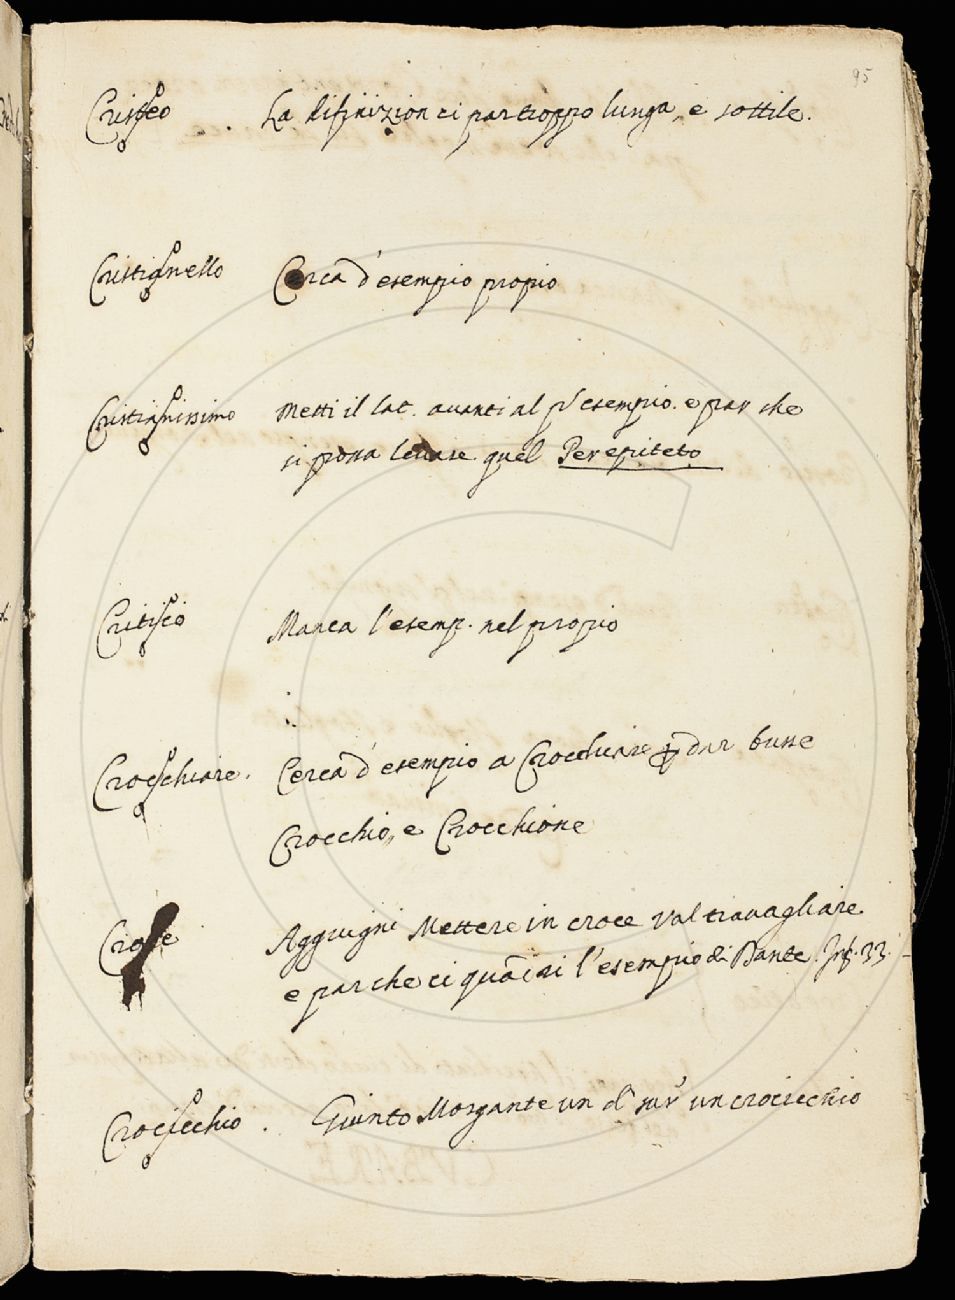 95
Cristeo La difinizion ci par troppo lunga, e sottile.
Cristianello Cerca d'esempio propio
Cristianissimo Metti il lat. avanti al pº esempio. e par che
si possa levare quel Per epiteto
Critico Manca l'esemp. nel propio
Crocchiare. Cerca d'esempio a Crocchiare p dar busse
Crocchio, e Crocchione
Croce Aggiugni Mettere in croce val travagliare
e par che ci quadri l'esempio di Dante Inf. 33.
Crocicchio. Giunto Morgante un dì sur un crocicchio